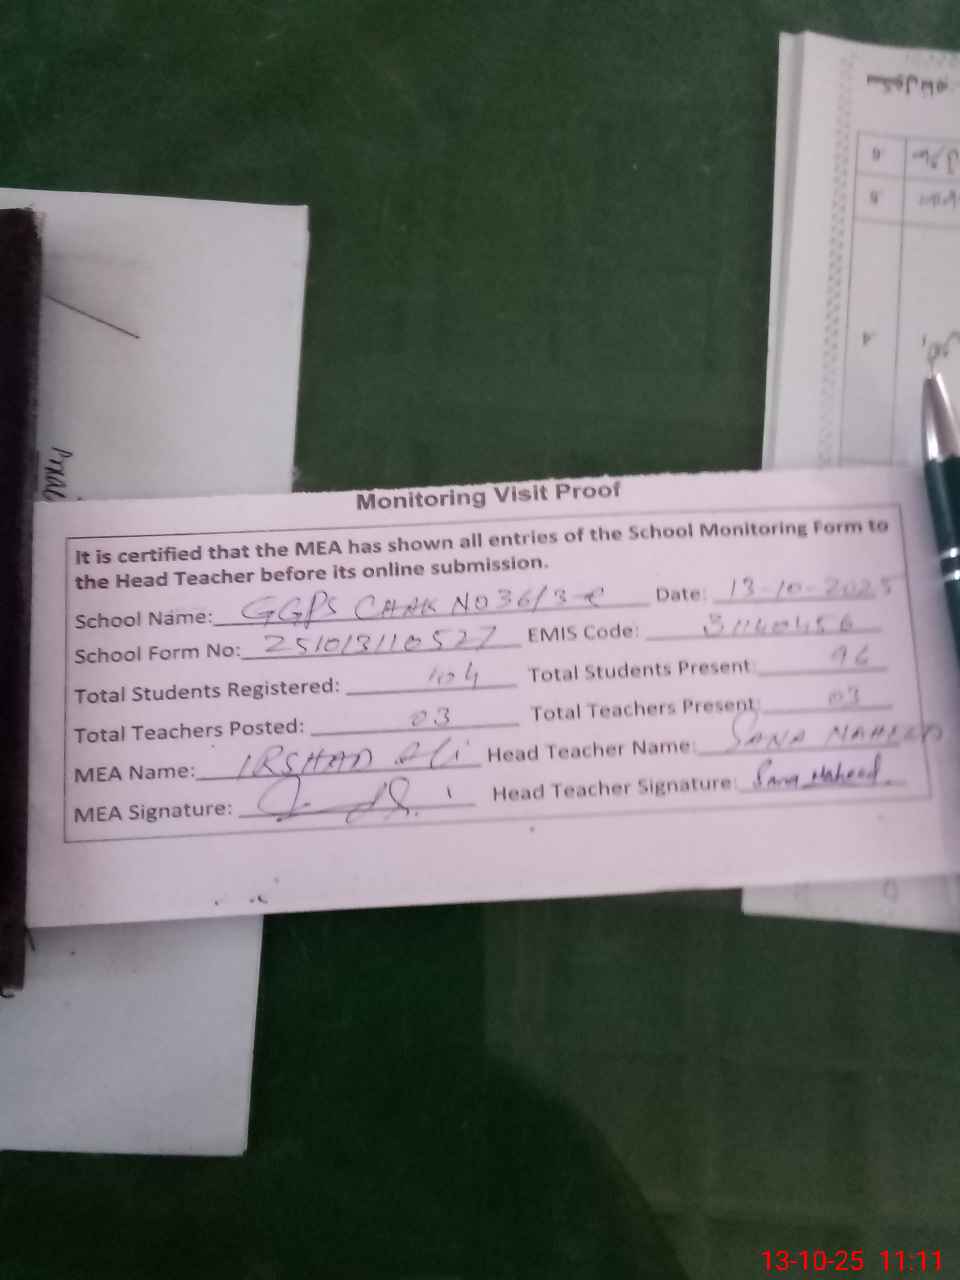 Monitoring Visit Proof
It is certified that the MEA has shown all entries of the School Monitoring Form to
the Head Teacher before its online submission.
School Name: GGPS CHAK NO 36/3-R Date: 13-10-2025
School Form No: 251013110527 EMIS Code: 31140456
Total Students Registered: 104 Total Students Present: 96
Total Teachers Posted: 03 Total Teachers Present: 03
MEA Name: IRSHAD Ali Head Teacher Name: SANA NAHEED
MEA Signature: Head Teacher Signature: Sana Naheed
13-10-25 11:11